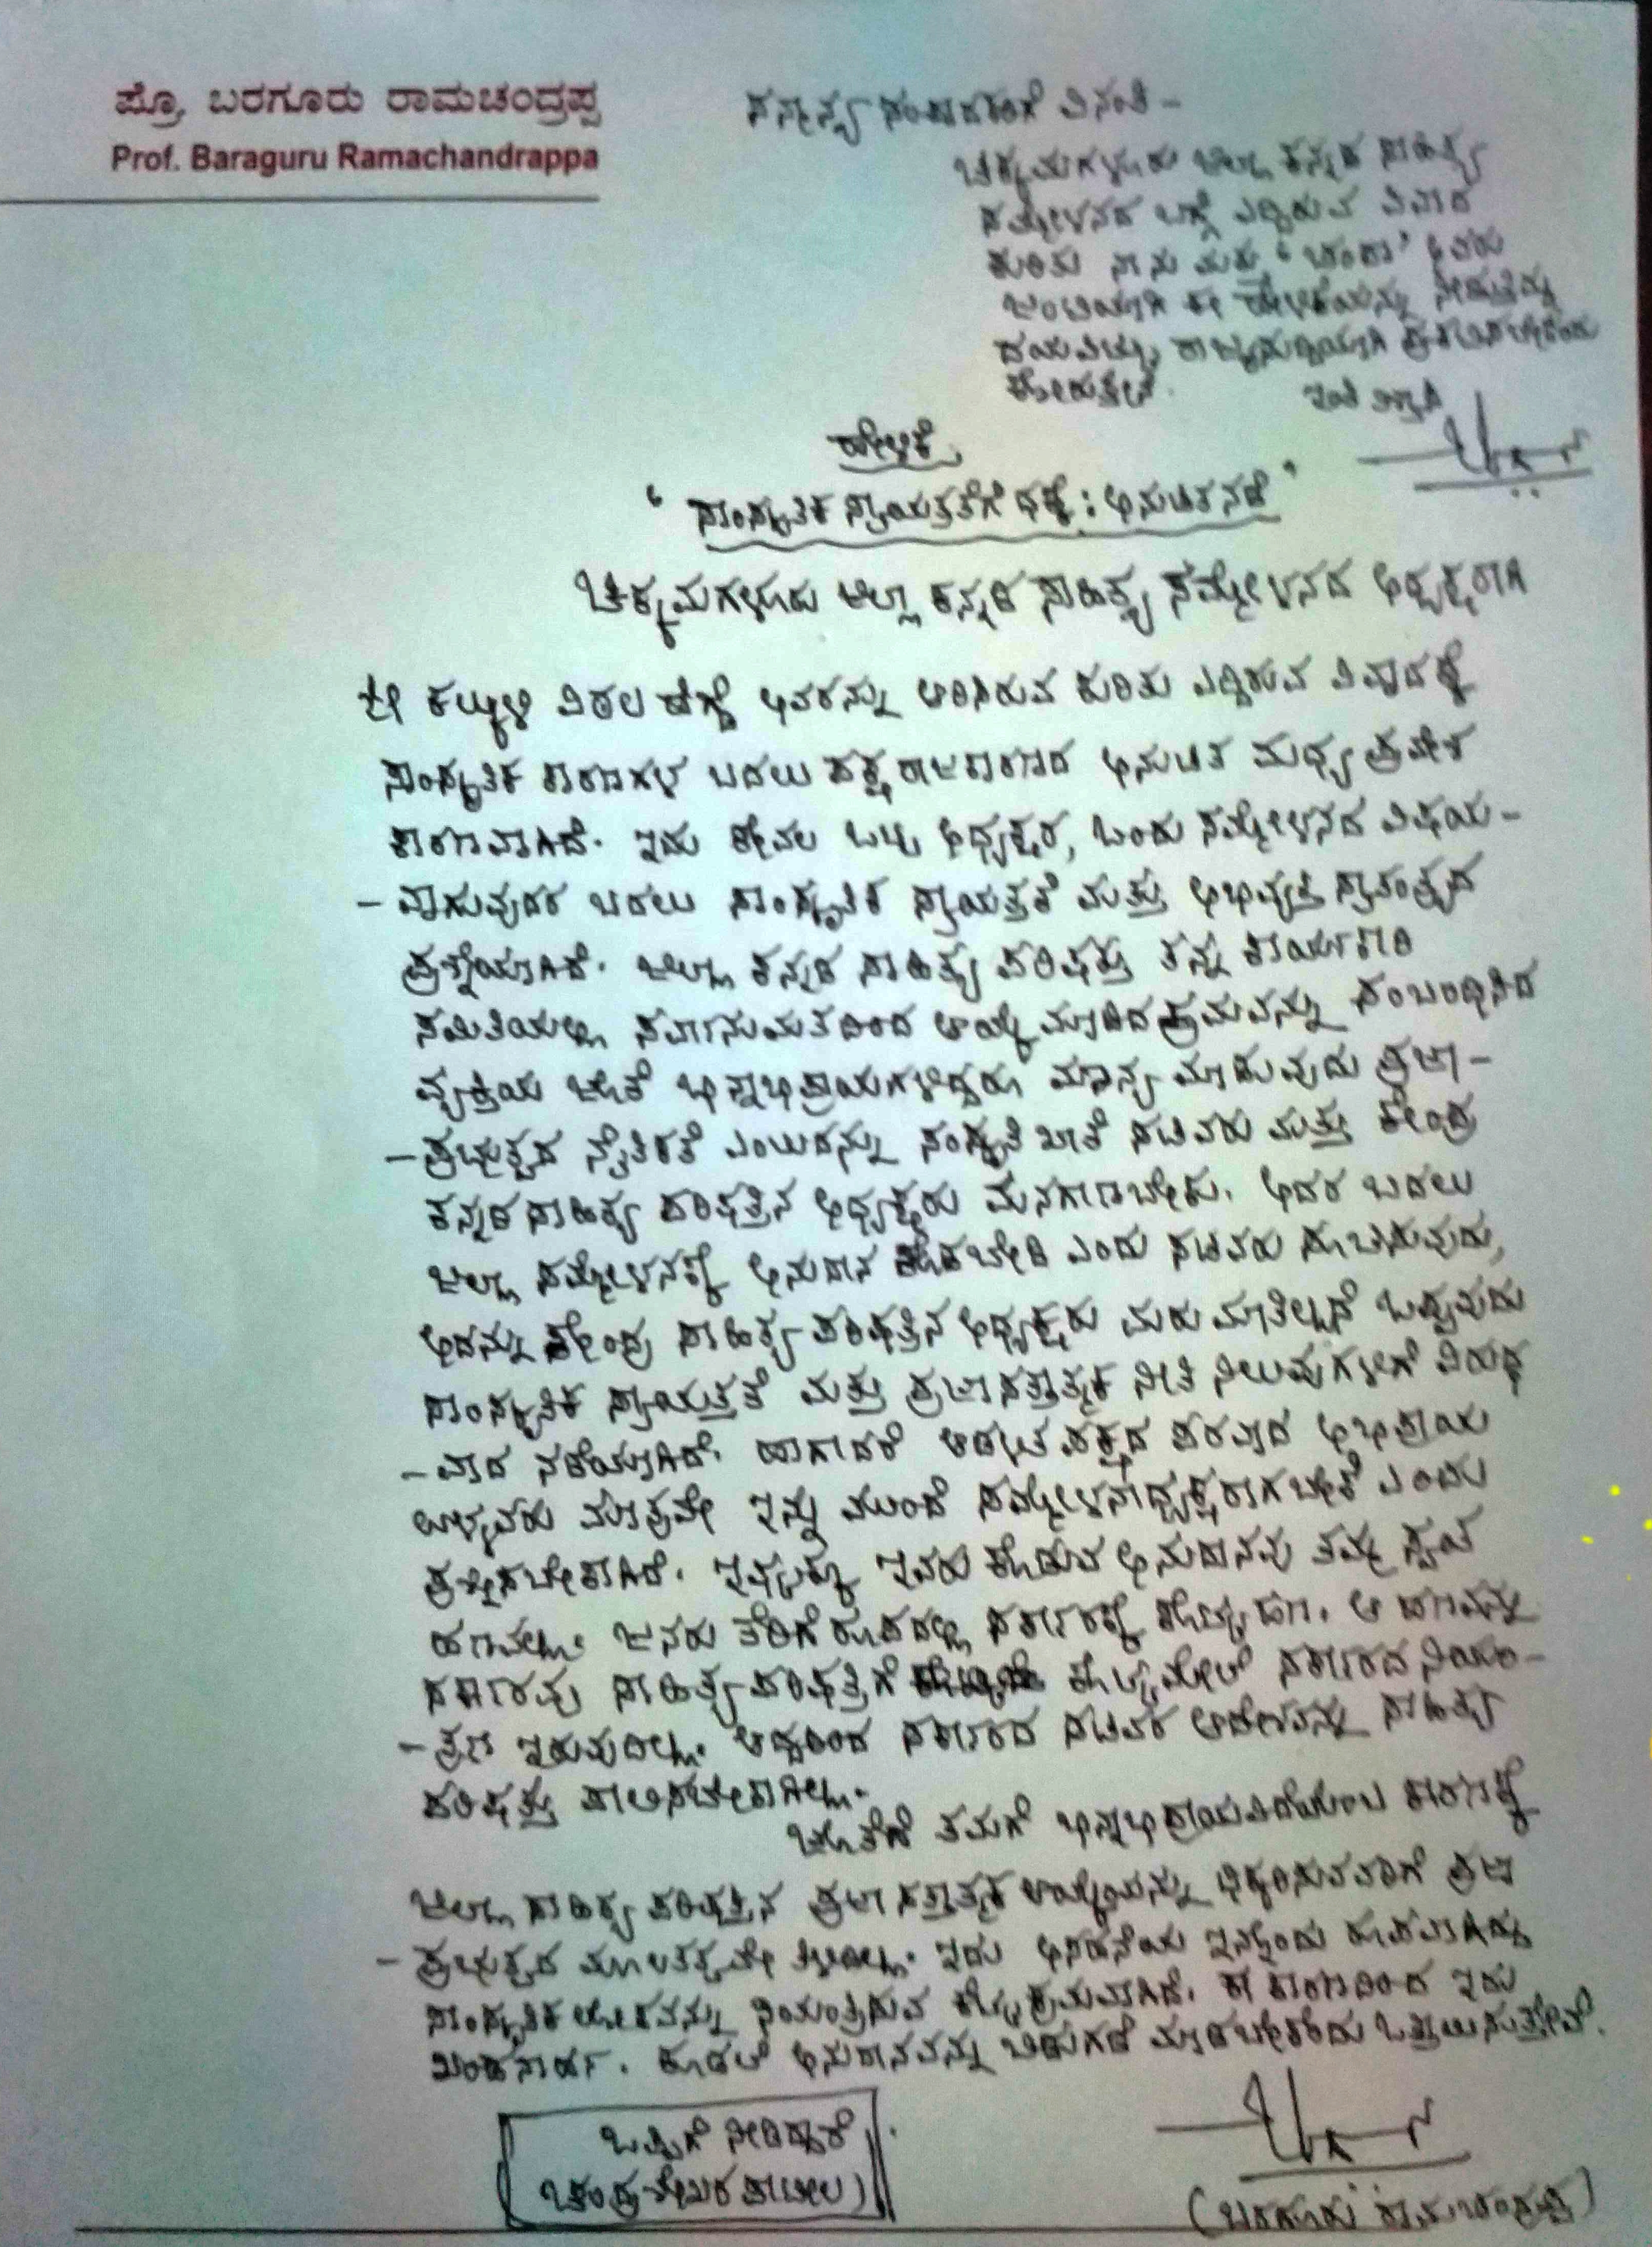 ಪ್ರೊ. ಬರಗೂರು ರಾಮಚಂದ್ರಪ್ಪ
Prof. Baraguru Ramachandrappa
ಸನ್ಮಾನ್ಯ ಸಂಪಾದಕರಿಗೆ ವಿನಂತಿ -
ಚಿಕ್ಕಮಗಳೂರು ಜಿಲ್ಲಾ ಕನ್ನಡ ಸಾಹಿತ್ಯ
ಸಮ್ಮೇಳನದ ಬಗ್ಗೆ ಎದ್ದಿರುವ ವಿವಾದ
ಕುರಿತು ನಾನು ಮತ್ತು 'ಚಂಪಾ' ಅವರು
ಜಂಟಿಯಾಗಿ ಈ ಹೇಳಿಕೆಯನ್ನು ನೀಡುತ್ತಿದ್ದು
ದಯವಿಟ್ಟು ರಾಜ್ಯಸುದ್ದಿಯಾಗಿ ಪ್ರಕಟಿಸಬೇಕೆಂದು
ಕೋರುತ್ತೇನೆ.
ಇಂತಿ ವಿಶ್ವಾಸಿ
ಹೇಳಿಕೆ
' ಸಾಂಸ್ಕೃತಿಕ ಸ್ವಾಯತ್ತತೆಗೆ ಧಕ್ಕೆ : ಅನುಚಿತ ನಡೆ '
ಚಿಕ್ಕಮಗಳೂರು ಜಿಲ್ಲಾ ಕನ್ನಡ ಸಾಹಿತ್ಯ ಸಮ್ಮೇಳನದ ಅಧ್ಯಕ್ಷರಾಗಿ
ಶ್ರೀ ಕಲ್ಕುಳಿ ವಿಠಲ ಹೆಗ್ಡೆ ಅವರನ್ನು ಆರಿಸಿರುವ ಕುರಿತು ಎದ್ದಿರುವ ವಿವಾದಕ್ಕೆ
ಸಾಂಸ್ಕೃತಿಕ ಕಾರಣಗಳ ಬದಲು ಪಕ್ಷ ರಾಜಕಾರಣದ ಅನುಚಿತ ಮಧ್ಯ ಪ್ರವೇಶ
ಕಾರಣವಾಗಿದೆ. ಇದು ಕೇವಲ ಒಬ್ಬ ಅಧ್ಯಕ್ಷರ, ಒಂದು ಸಮ್ಮೇಳನದ ವಿಷಯ-
- ವಾಗುವುದರ ಬದಲು ಸಾಂಸ್ಕೃತಿಕ ಸ್ವಾಯತ್ತತೆ ಮತ್ತು ಅಭಿವ್ಯಕ್ತಿ ಸ್ವಾತಂತ್ರ್ಯದ
ಪ್ರಶ್ನೆಯಾಗಿದೆ. ಜಿಲ್ಲಾ ಕನ್ನಡ ಸಾಹಿತ್ಯ ಪರಿಷತ್ತು ತನ್ನ ಕಾರ್ಯಕಾರಿ
ಸಮಿತಿಯಲ್ಲಿ ಸರ್ವಾನುಮತದಿಂದ ಆಯ್ಕೆ ಮಾಡಿದ ಕ್ರಮವನ್ನು ಸಂಬಂಧಿಸಿದ
ವ್ಯಕ್ತಿಯ ಜೊತೆ ಭಿನ್ನಾಭಿಪ್ರಾಯಗಳಿದ್ದರೂ ಮಾನ್ಯ ಮಾಡುವುದು ಪ್ರಜಾ-
- ಪ್ರಭುತ್ವದ ನೈತಿಕತೆ ಎಂಬುದನ್ನು ಸಂಸ್ಕೃತಿ ಖಾತೆ ಸಚಿವರು ಮತ್ತು ಕೇಂದ್ರ
ಕನ್ನಡ ಸಾಹಿತ್ಯ ಪರಿಷತ್ತಿನ ಅಧ್ಯಕ್ಷರು ಮನಗಾಣಬೇಕು. ಅದರ ಬದಲು
ಜಿಲ್ಲಾ ಸಮ್ಮೇಳನಕ್ಕೆ ಅನುದಾನ ಕೊಡಬೇಡಿ ಎಂದು ಸಚಿವರು ಸೂಚಿಸುವುದು,
ಅದನ್ನು ಕೇಂದ್ರ ಸಾಹಿತ್ಯ ಪರಿಷತ್ತಿನ ಅಧ್ಯಕ್ಷರು ಮರು ಮಾತಿಲ್ಲದೆ ಒಪ್ಪುವುದು
ಸಾಂಸ್ಕೃತಿಕ ಸ್ವಾಯತ್ತತೆ ಮತ್ತು ಪ್ರಜಾಸತ್ತಾತ್ಮಕ ನೀತಿ ನಿಲುವುಗಳಿಗೆ ವಿರುದ್ಧ
- ವಾದ ನಡೆಯಾಗಿದೆ. ಹಾಗಾದರೆ ಆಡಳಿತ ಪಕ್ಷದ ಪರವಾದ ಅಭಿಪ್ರಾಯ
ಉಳ್ಳವರು ಮಾತ್ರವೇ ಇನ್ನು ಮುಂದೆ ಸಮ್ಮೇಳನಾಧ್ಯಕ್ಷರಾಗಬೇಕೆ ಎಂದು
ಪ್ರಶ್ನಿಸಬೇಕಾಗಿದೆ. ಇಷ್ಟಕ್ಕೂ ಇವರು ಕೊಡುವ ಅನುದಾನವು ತಮ್ಮ ಸ್ವಂತ
ಹಣವಲ್ಲ. ಜನರು ತೆರಿಗೆ ರೂಪದಲ್ಲಿ ಸರ್ಕಾರಕ್ಕೆ ಕೊಟ್ಟ ಹಣ. ಆ ಹಣವನ್ನು
ಸರ್ಕಾರವು ಸಾಹಿತ್ಯ ಪರಿಷತ್ತಿಗೆ ಕೊಟ್ಟ ಮೇಲೆ ಸರ್ಕಾರದ ನಿಯಂ-
- ತ್ರಣ ಇರುವುದಿಲ್ಲ. ಆದ್ದರಿಂದ ಸರ್ಕಾರದ ಸಚಿವರ ಆದೇಶವನ್ನು ಸಾಹಿತ್ಯ
ಪರಿಷತ್ತು ಪಾಲಿಸಬೇಕಾಗಿಲ್ಲ.
ಜೊತೆಗೆ ತಮಗೆ ಭಿನ್ನಾಭಿಪ್ರಾಯವಿದೆಯೆಂಬ ಕಾರಣಕ್ಕೆ
ಜಿಲ್ಲಾ ಸಾಹಿತ್ಯ ಪರಿಷತ್ತಿನ ಪ್ರಜಾಸತ್ತಾತ್ಮಕ ಆಯ್ಕೆಯನ್ನು ಧಿಕ್ಕರಿಸುವವರಿಗೆ ಪ್ರಜಾ
- ಪ್ರಭುತ್ವದ ಮೂಲತತ್ವವೇ ತಿಳಿದಿಲ್ಲ. ಇದು ಅಸಹನೆಯ ಇನ್ನೊಂದು ರೂಪವಾಗಿದ್ದು
ಸಾಂಸ್ಕೃತಿಕ ಲೋಕವನ್ನು ನಿಯಂತ್ರಿಸುವ ಕೆಟ್ಟ ಕ್ರಮವಾಗಿದೆ. ಈ ಕಾರಣದಿಂದ ಇದು
ಖಂಡನಾರ್ಹ. ಕೂಡಲೆ ಅನುದಾನವನ್ನು ಬಿಡುಗಡೆ ಮಾಡಬೇಕೆಂದು ಒತ್ತಾಯಿಸುತ್ತೇವೆ.
ಒಪ್ಪಿಗೆ ನೀಡಿದ್ದಾರೆ
(ಚಂದ್ರಶೇಖರ ಪಾಟೀಲ)
(ಬರಗೂರು ರಾಮಚಂದ್ರಪ್ಪ)